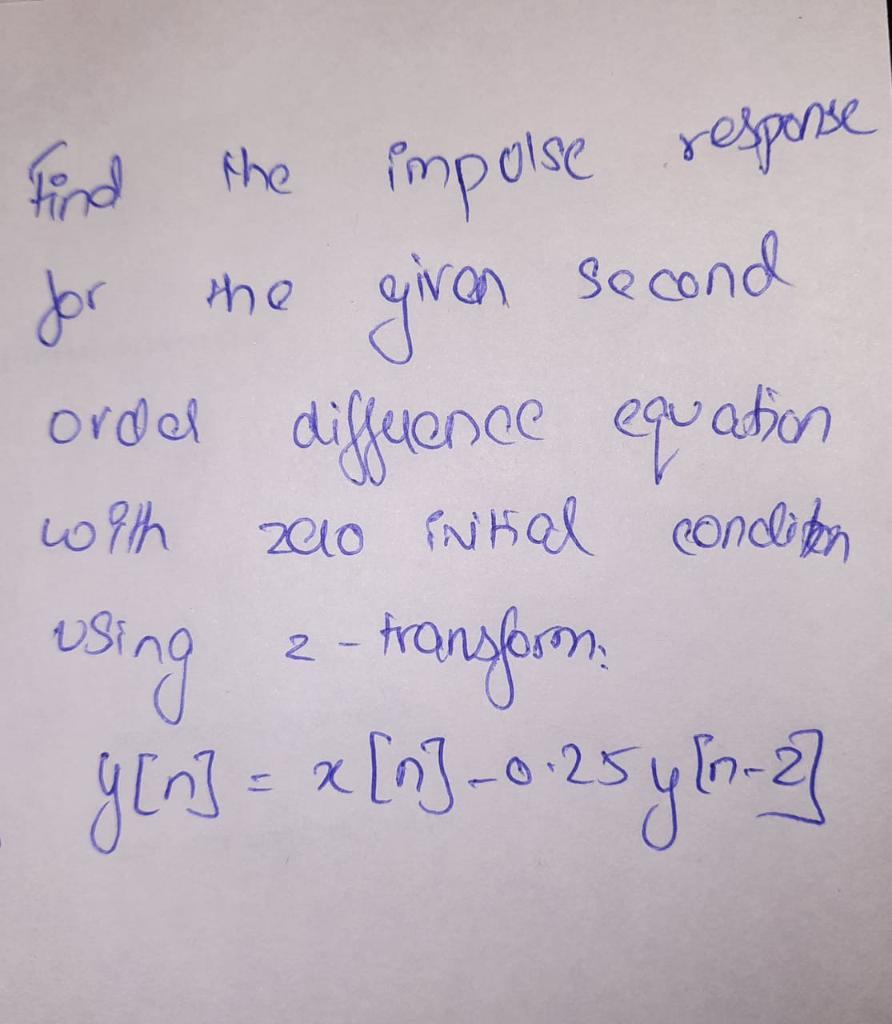 Find the impulse response
for the given second
order difference equation
with zero initial condition
using z-transform:
y[n] = x[n]-0.25y[n-2]